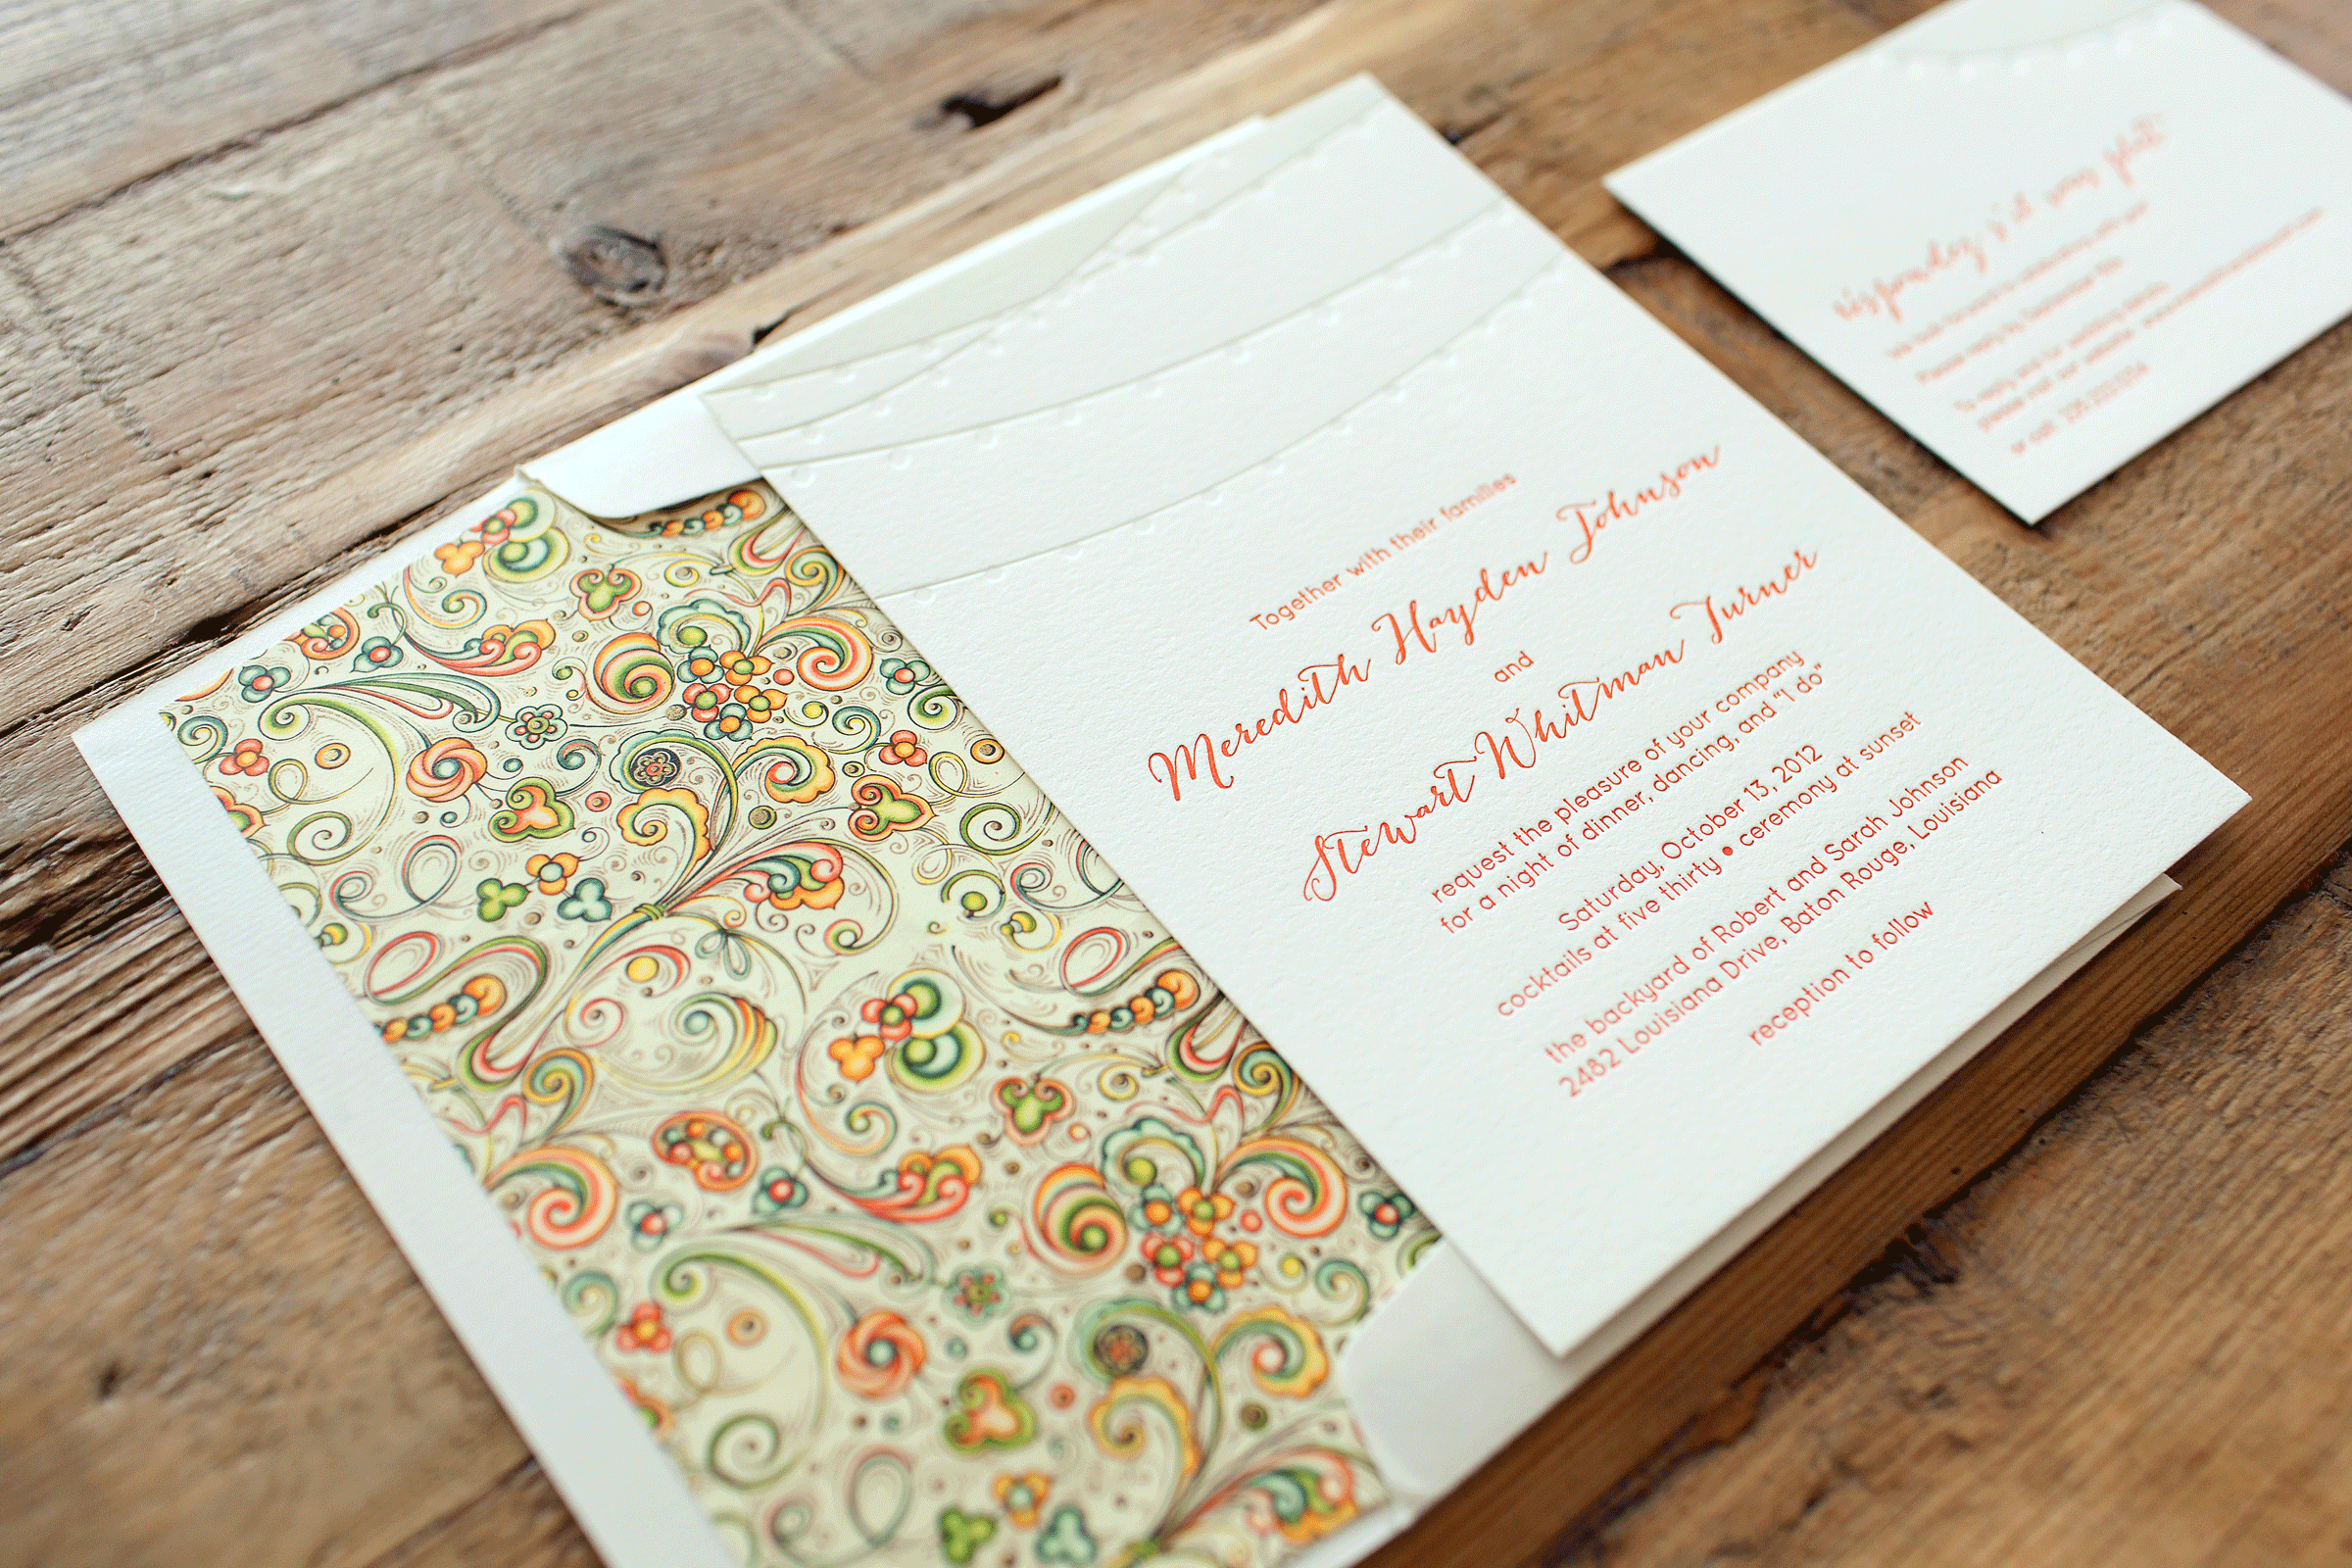 Together with their families
Meredith Hayden Johnson
and
Stewart Whitman Turner
request the pleasure of your company
for a night of dinner, dancing, and "I do"
Saturday, October 13, 2012
cocktails at five thirty • ceremony at sunset
the backyard of Robert and Sarah Johnson
2482 Louisiana Drive, Baton Rouge, Louisiana
reception to follow
répondez s'il vous plaît
We look forward to celebrating with you!
Please reply by September
To reply and for wedding details,
please visit our website
or call